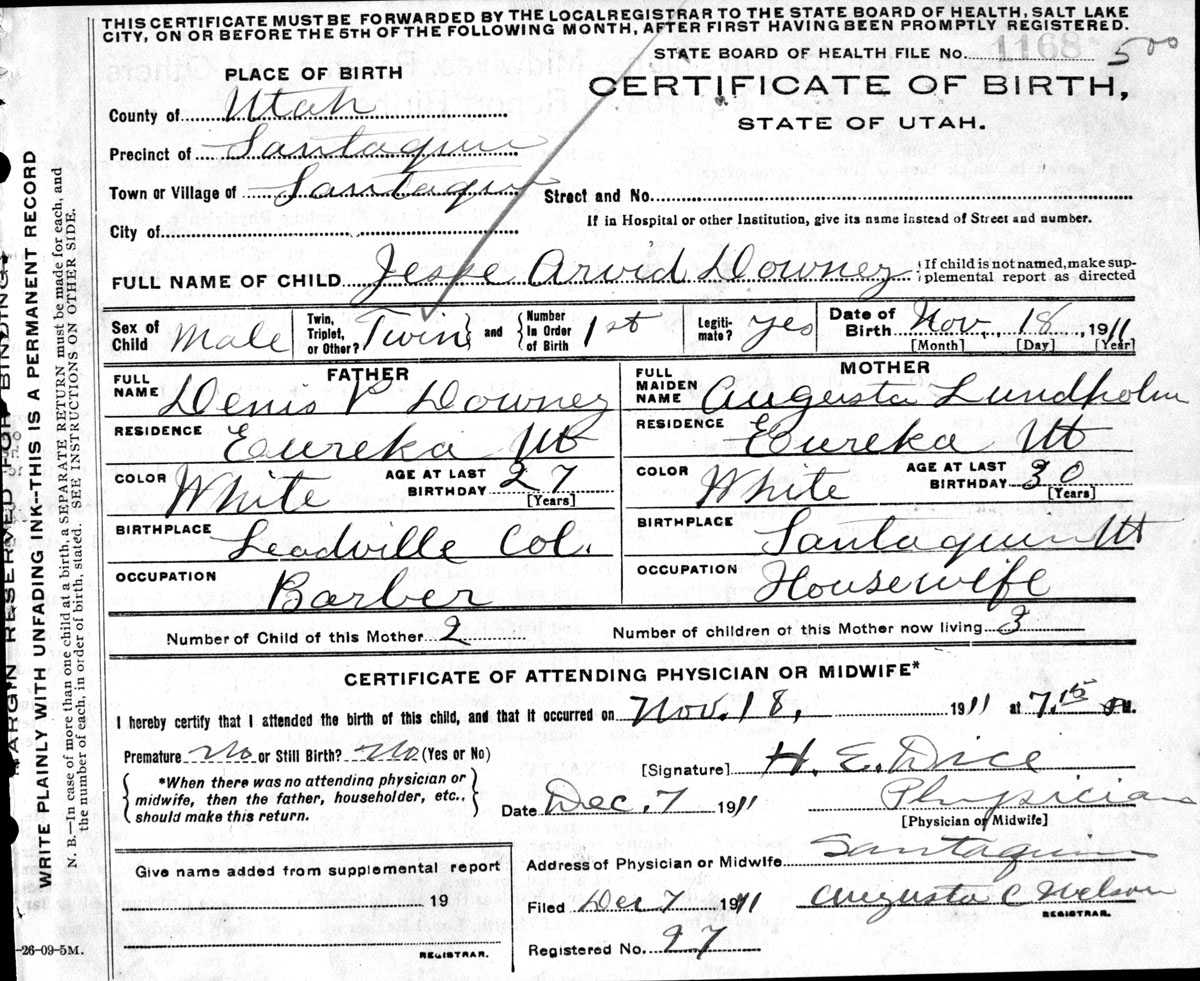 THIS CERTIFICATE MUST BE FORWARDED BY THE LOCAL REGISTRAR TO THE STATE BOARD OF HEALTH, SALT LAKE
CITY, ON OR BEFORE THE 5TH OF THE FOLLOWING MONTH, AFTER FIRST HAVING BEEN PROMPTLY REGISTERED.
STATE BOARD OF HEALTH FILE No. 1168 500
PLACE OF BIRTH
CERTIFICATE OF BIRTH,
STATE OF UTAH.
County of Utah
Precinct of Santaquin
Town or Village of Santaquin Street and No.
If in Hospital or other Institution, give its name instead of Street and number.
City of
FULL NAME OF CHILD Jesse Arvid Downey { If child is not named, make sup-
plemental report as directed
Sex of Child Male Twin, Triplet, or Other? Twin and Number In Order of Birth 1st Legiti-mate? Yes Date of Birth Nov. 18, 1911
[Month] [Day] [Year]
FATHER MOTHER
FULL NAME Denis P Downey FULL MAIDEN NAME Augusta Lundholm
RESIDENCE Eureka Ut RESIDENCE Eureka Ut
COLOR White AGE AT LAST BIRTHDAY 27 [Years] COLOR White AGE AT LAST BIRTHDAY 30 [Years]
BIRTHPLACE Leadville Col. BIRTHPLACE Santaquin Ut
OCCUPATION Barber OCCUPATION Housewife
Number of Child of this Mother 2 Number of children of this Mother now living 3
CERTIFICATE OF ATTENDING PHYSICIAN OR MIDWIFE*
I hereby certify that I attended the birth of this child, and that it occurred on Nov. 18, 1911 at 7.15 M.
Premature No or Still Birth? No (Yes or No)
[Signature] H. E. Dice
*When there was no attending physician or
midwife, then the father, householder, etc.,
should make this return.
Date Dec. 7 1911 Physician
[Physician or Midwife]
Give name added from supplemental report
19
REGISTRAR.
Address of Physician or Midwife Santaquin
Filed Dec 7 1911 Augusta C Nelson
REGISTRAR.
Registered No. 27
-26-09-5M.
MARGIN RESERVED FOR BINDING
WRITE PLAINLY WITH UNFADING INK--THIS IS A PERMANENT RECORD
N. B.—In case of more than one child at a birth, a SEPARATE RETURN must be made for each, and
the number of each, in order of birth, stated. SEE INSTRUCTIONS ON OTHER SIDE.